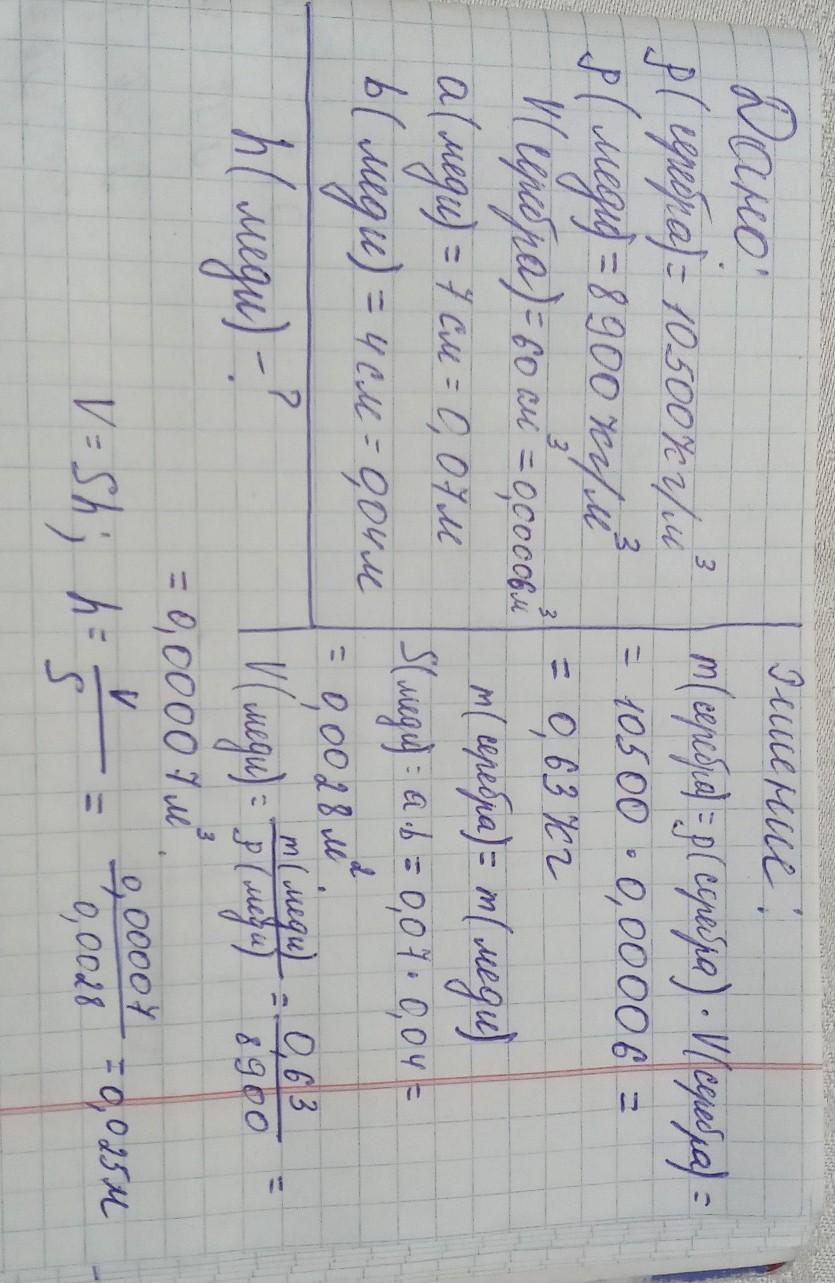 Дано:
ρ(серебра) = 10500 кг/м³
ρ(меди) = 8900 кг/м³
V(серебра) = 60 см³ = 0,00006 м³
a(меди) = 7 см = 0,07 м
b(меди) = 4 см = 0,04 м
h(меди) - ?
Решение:
m(серебра) = ρ(серебра) · V(серебра) =
= 10500 · 0,00006 =
= 0,63 кг
m(серебра) = m(меди)
S(меди) = a·b = 0,07 · 0,04 =
= 0,0028 м²
V(меди) = m(меди)/ρ(меди) = 0,63/8900 =
= 0,00007 м³
V = Sh; h = V/S = 0,00007/0,0028 = 0,025 м